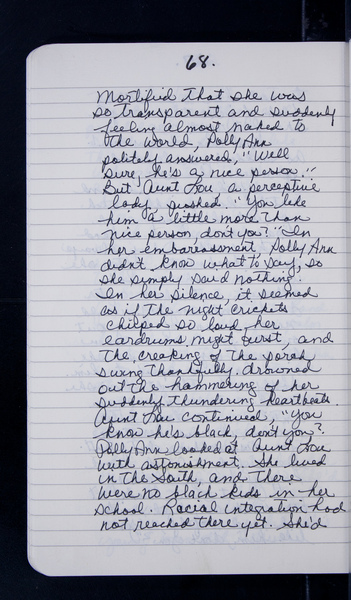 68.
Mortified that she was
so transparent and suddenly
feeling almost naked to
the world, Polly Ann
politely answered, "Well
sure, he's a nice person."
But Aunt Lou a perceptive
lady, pushed. "You like
him a little more than
nice person, don't you?" In
her embarrassment Polly Ann
didn't know what to say, so
she simply said nothing.
In her silence, it seemed
as if the night crickets
chirped so loud her
eardrums might burst, and
the creaking of the porch
swing thankfully drowned
out the hammering of her
suddenly thundering heartbeats.
Aunt Lou continued, "You
know he's black, don't you?
Polly Ann looked at Aunt Lou
with astonishment. She lived
in the South, and there
were no black kids in her
school. Racial integration had
not reached there yet. She'd